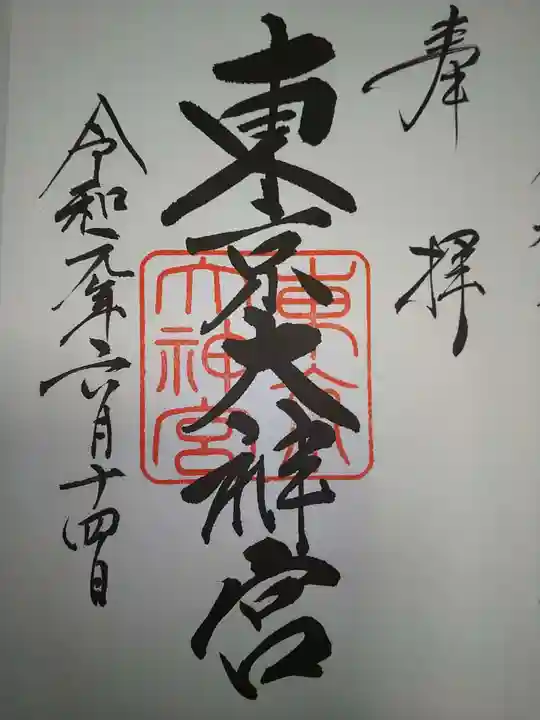 奉拝
東京大神宮
東京大神宮
令和元年六月十四日